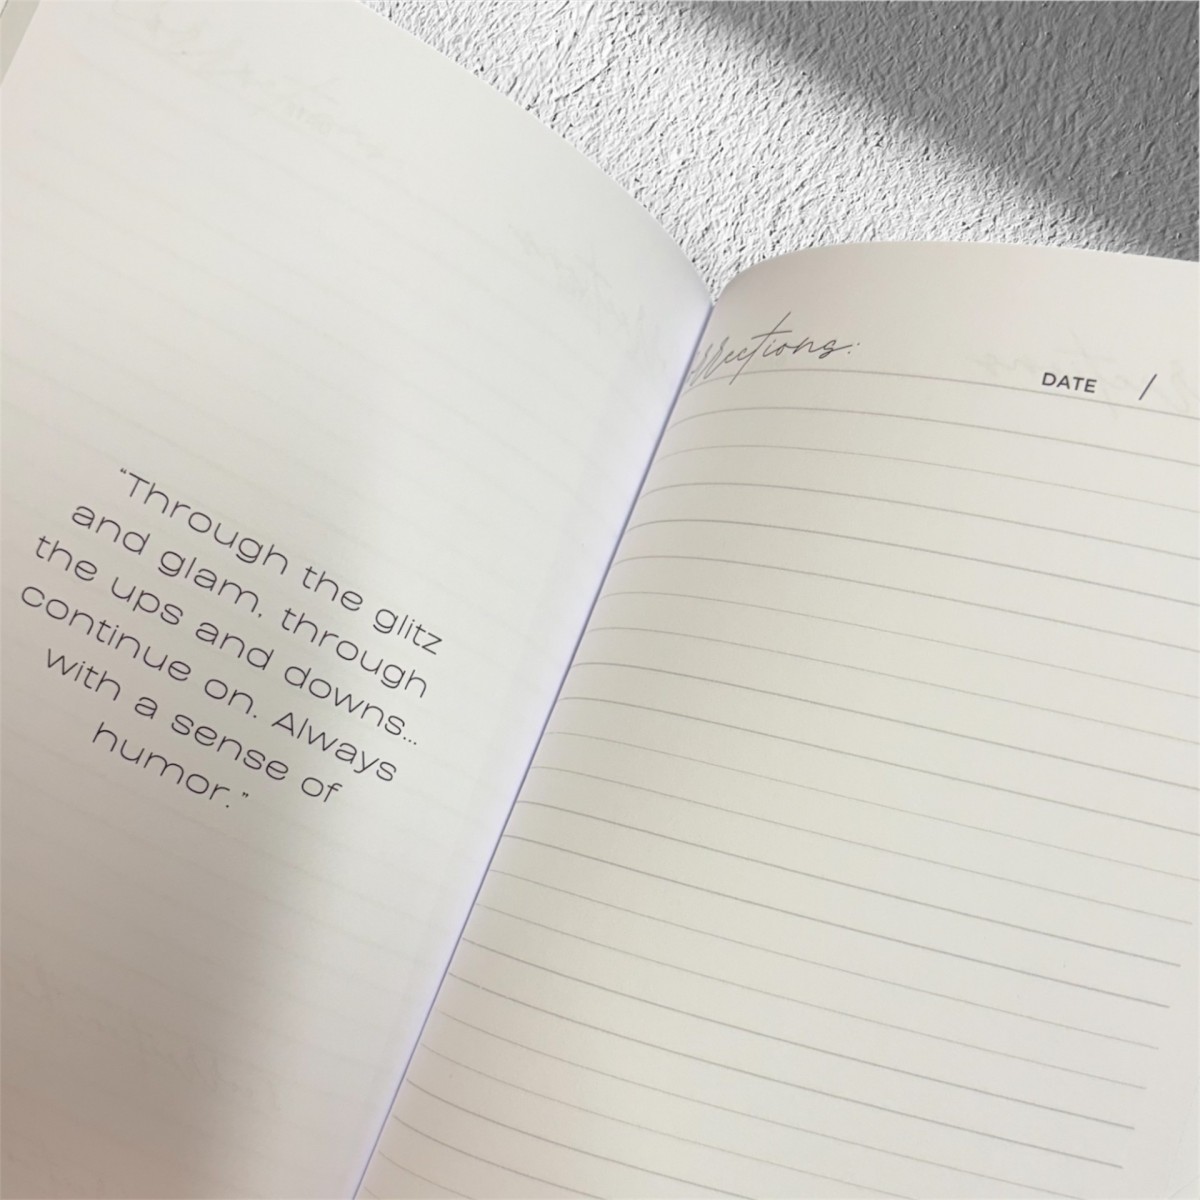 “Through the glitz
and glam, through
the ups and downs...
continue on. Always
with a sense of
humor.”
rrections:
DATE /